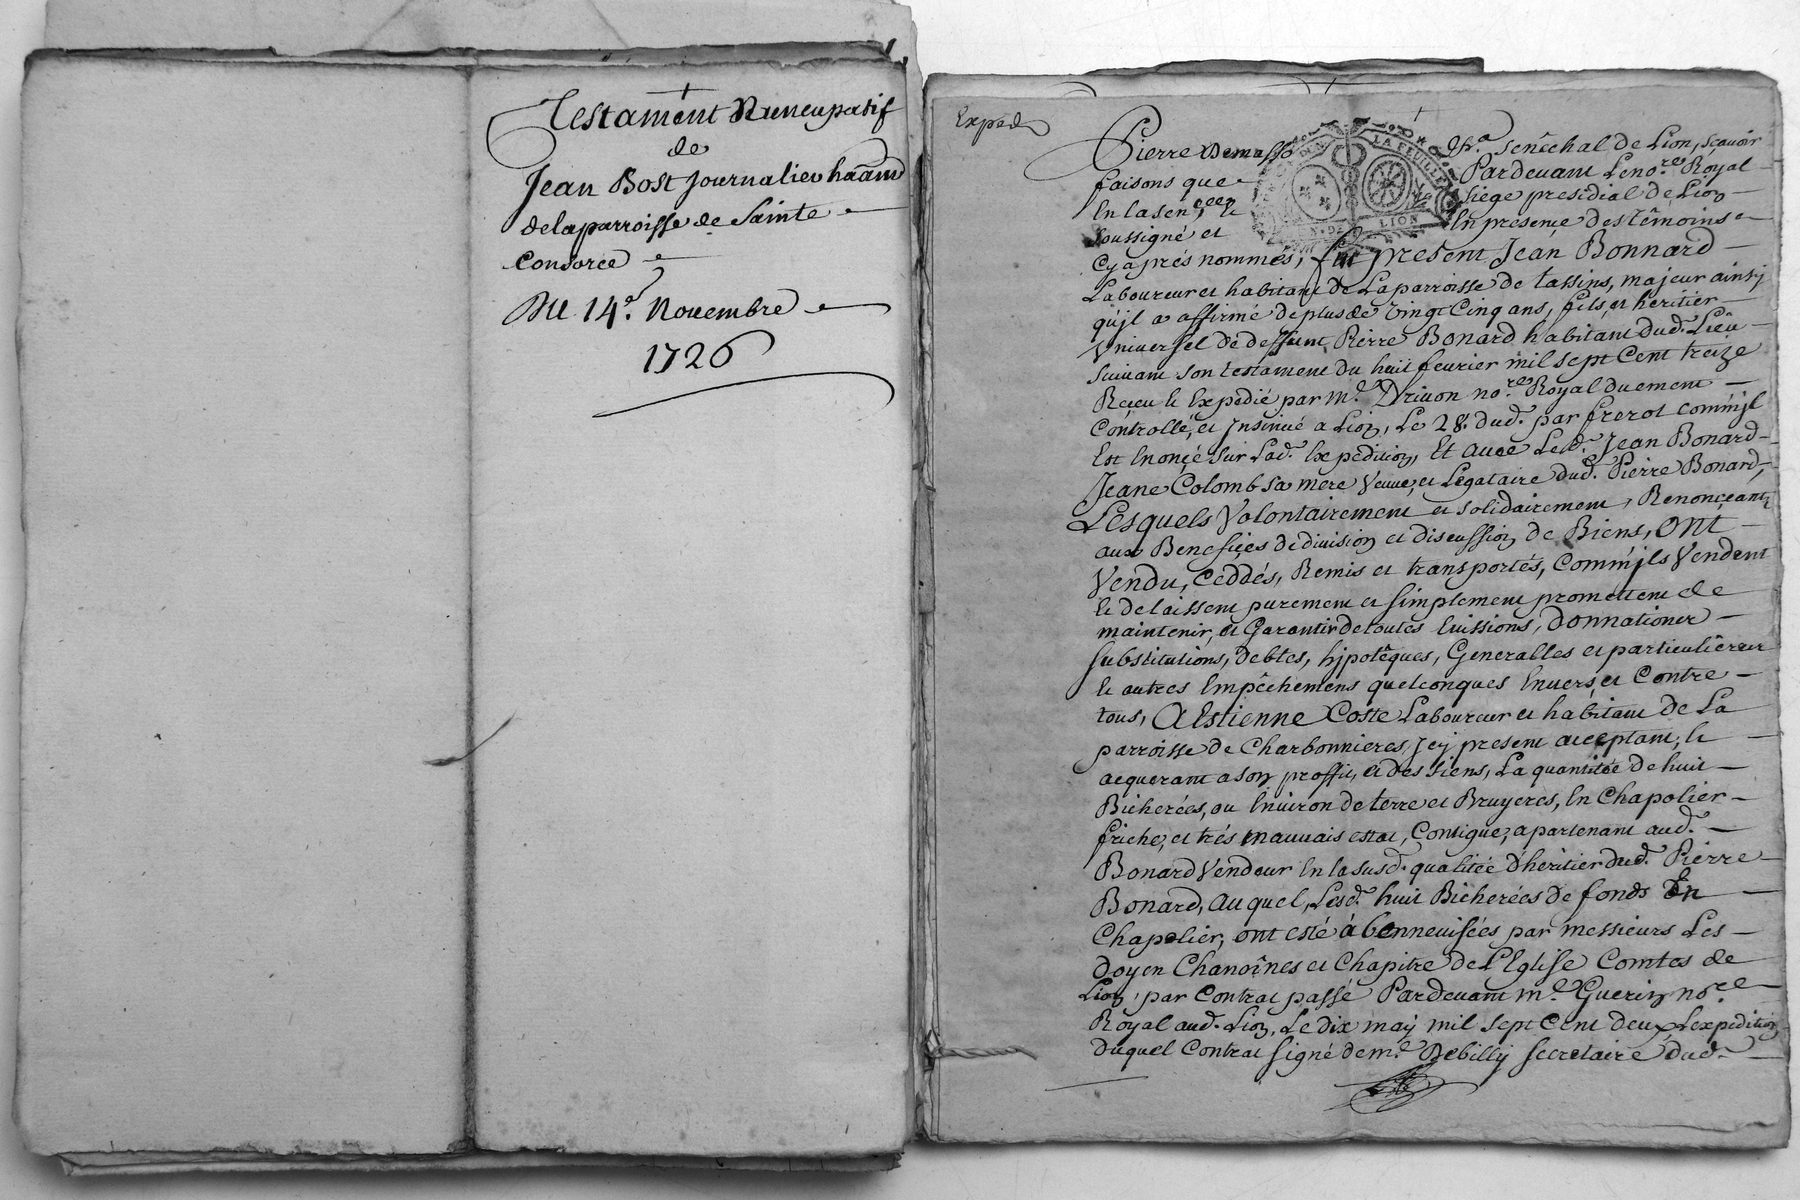 Testament Nuncupatif
de
Jean Bost Journalier habitant
de la parroisse de Sainte
Consorce
Du 14e. Novembre
1726
Exped
Pierre Demasso sgr. senéchal de Lion, sçavoir
faisons que Pardevant Le nore. Royal
En la senceé. & siége presidial de Lion
soussigné et En presence des témoins
Cy aprés nommés, fut present Jean Bonnard
Laboureur et habitant de La parroisse de tassins, majeur ainsy
qu'jl a affirmé de plus de vingt Cinq ans, fils, et héritier
Vniversel de deffunt Pierre Bonard habitant dud. Lieu
suivant son testament du huit fevrier mil sept Cent treize
Reçeu & Expedié par Me. Drivon nore. Royal duement
Controllé, et Jnsinué a Lion, Le 28. dud. par frerot comm'jl
Est Enonçé sur Lad. Expedition, Et avec Led. Jean Bonard
Jeane Colomb sa mere Veuve, et Légataire dud. Pierre Bonard,
Lesquels Volontairement et solidairement, Renonçeants
aux Benefiçes de division et discussion de Biens, ont
Vendu, Ceddés, Remis et transportés, Comm'jls Vendent
& delaissent purement et simplement promettent de
maintenir, et Garantir de toutes Evissions, donnationer
substitutions, debtes, hipotéques, Generalles et particuliéres
& autres Empéchemens quelconques Envers, et Contre
tous, A Estienne Coste Laboureur et habitant de La
parroisse de Charbonnieres, Jcy present acceptant, &
acquerant a son proffit, et des siens, La quantitée de huit
Bicherées, ou Environ de terre et Bruyeres, En Chapolier
friche, et trés mauvais estat, Contigue, apartenant aud.
Bonard Vendeur En la susd. qualitée d'heritier dud. Pierre
Bonard, auquel, Lesd. huit Bicherées de fonds En
Chapolier, ont esté abennevisées par messieurs Les
Doyen Chanoines et Chapitre de L'Eglise Comtes de
Lion, par Contrat passé Pardevant Me. Guerin nore.
Royal aud. Lion, Le dix may mil sept Cent deux, Lexpedition
duquel Contrat signé de me. Debilly secretaire dud.
LA FEUILLE
LION